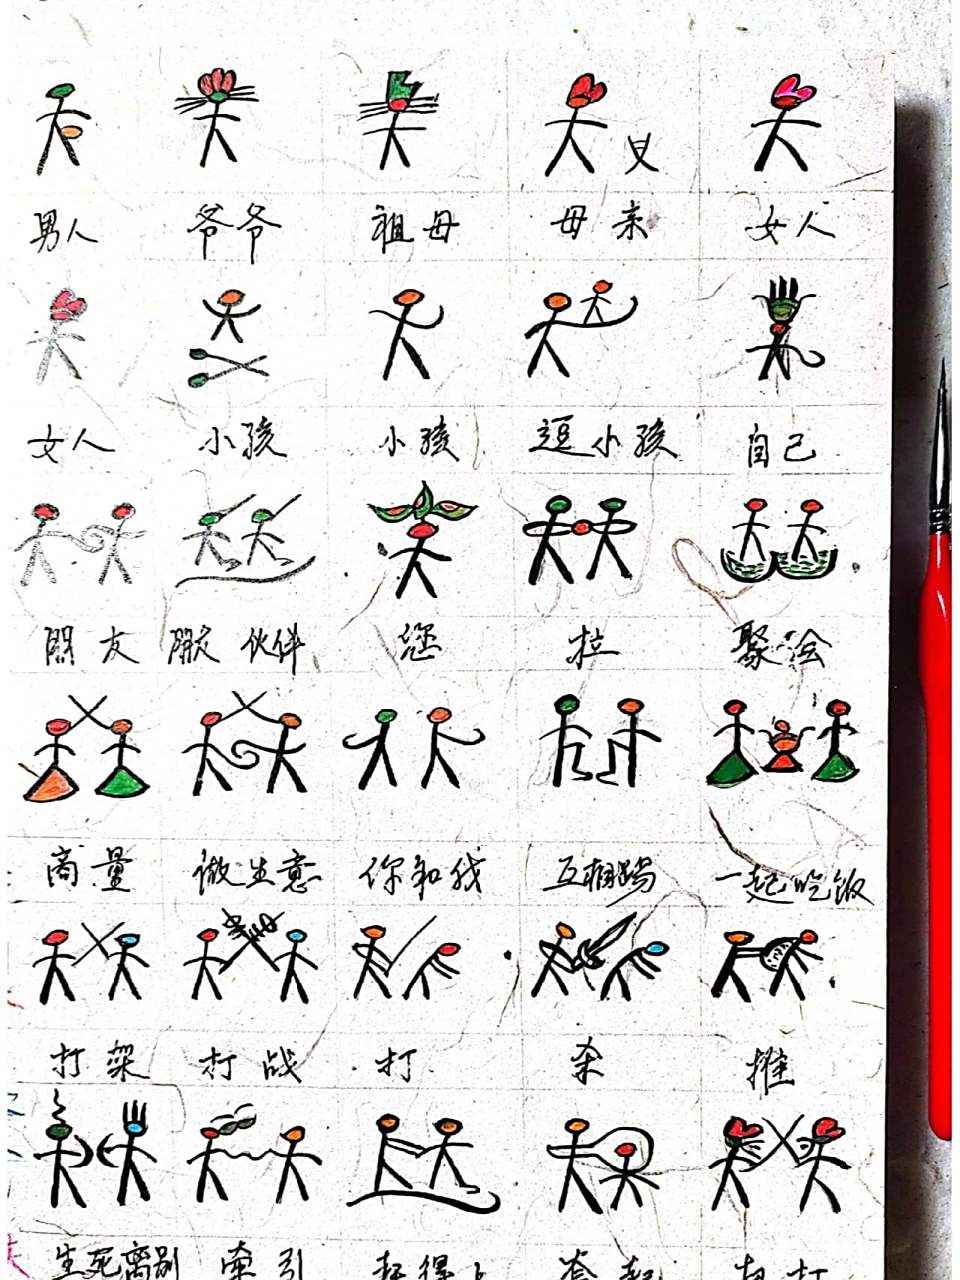 男人 爷爷 祖母 母亲 女人
女人 小孩 小孩 逗小孩 自己
朋友 朋友 伙伴 您 拉 聚会
商量 做生意 你和我 互相踢 一起吃饭
打架 打战 打 杀 推
生死离别 牵引